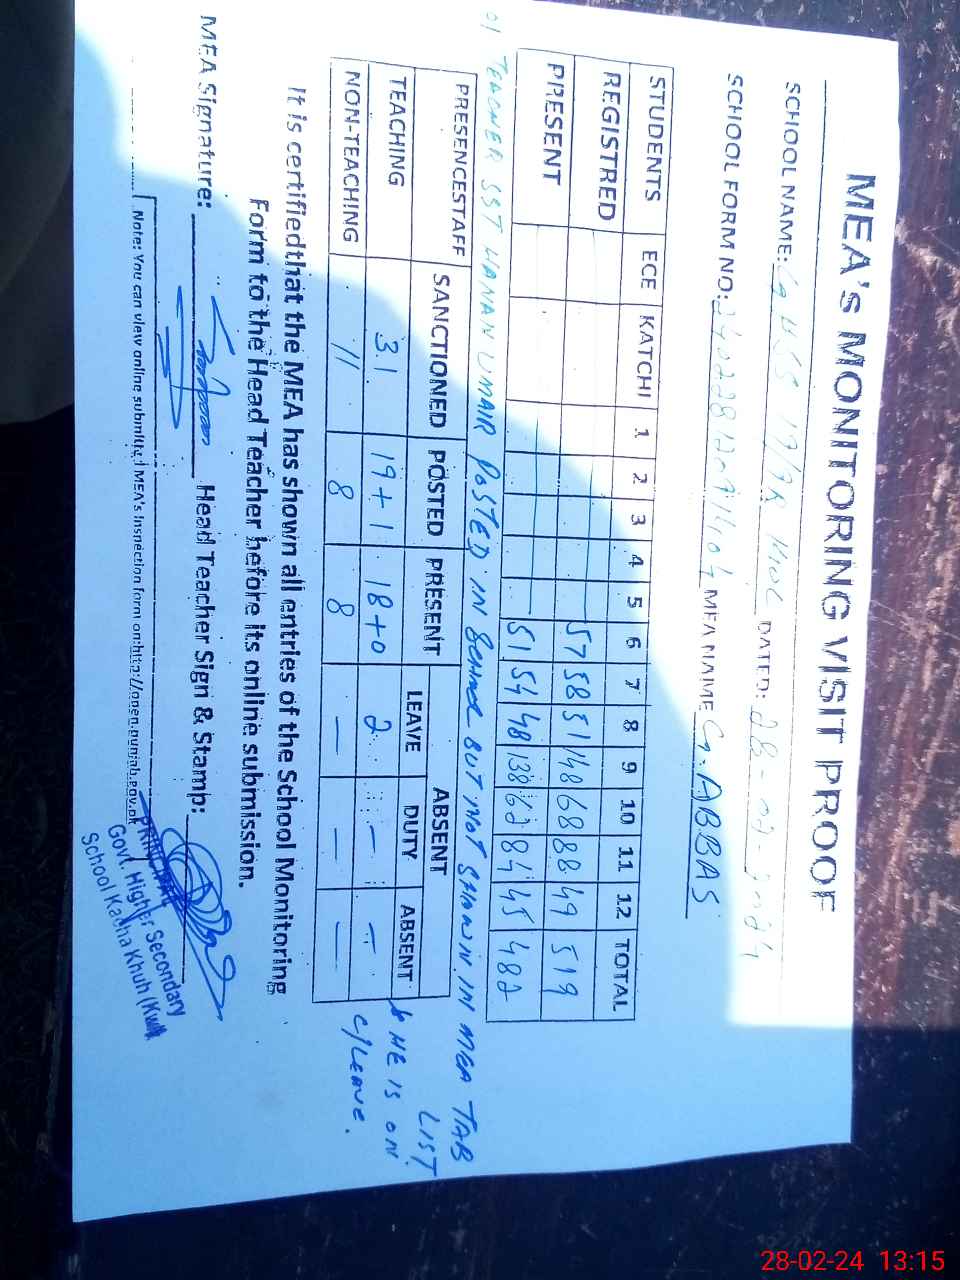 MEA's MONITORING VISIT PROOF
SCHOOL NAME: GHSS 17/9R KHUC DATED: 28-02-2024
SCHOOL FORM NO: MEA NAME G. ABBAS
STUDENTS ECE KATCHI 1 2 3 4 5 6 7 8 9 10 11 12 TOTAL
REGISTRED 57 58 51 148 68 88 49 519
PRESENT 51 54 48 138 62 84 45 482
01 TEACHER SST HANAN UMAIR POSTED IN SCHOOL BUT NOT SHOWN IN MEA TAB LIST
& HE IS ON C/LEAVE.
PRESENCESTAFF SANCTIONED POSTED PRESENT ABSENT
LEAVE DUTY ABSENT
TEACHING 31 19+1 18+0 2 - -
NON-TEACHING 11 8 8 - - -
It is certifiedthat the MEA has shown all entries of the School Monitoring
Form to the Head Teacher before its online submission.
MEA Signature: Head Teacher Sign & Stamp:
PRINCIPAL
Govt. Higher Secondary
School Kacha Khuh (Kwl)
Note: You can view online submitted MEA's inspection form on:http://open.punjab.gov.pk
28-02-24 13:15